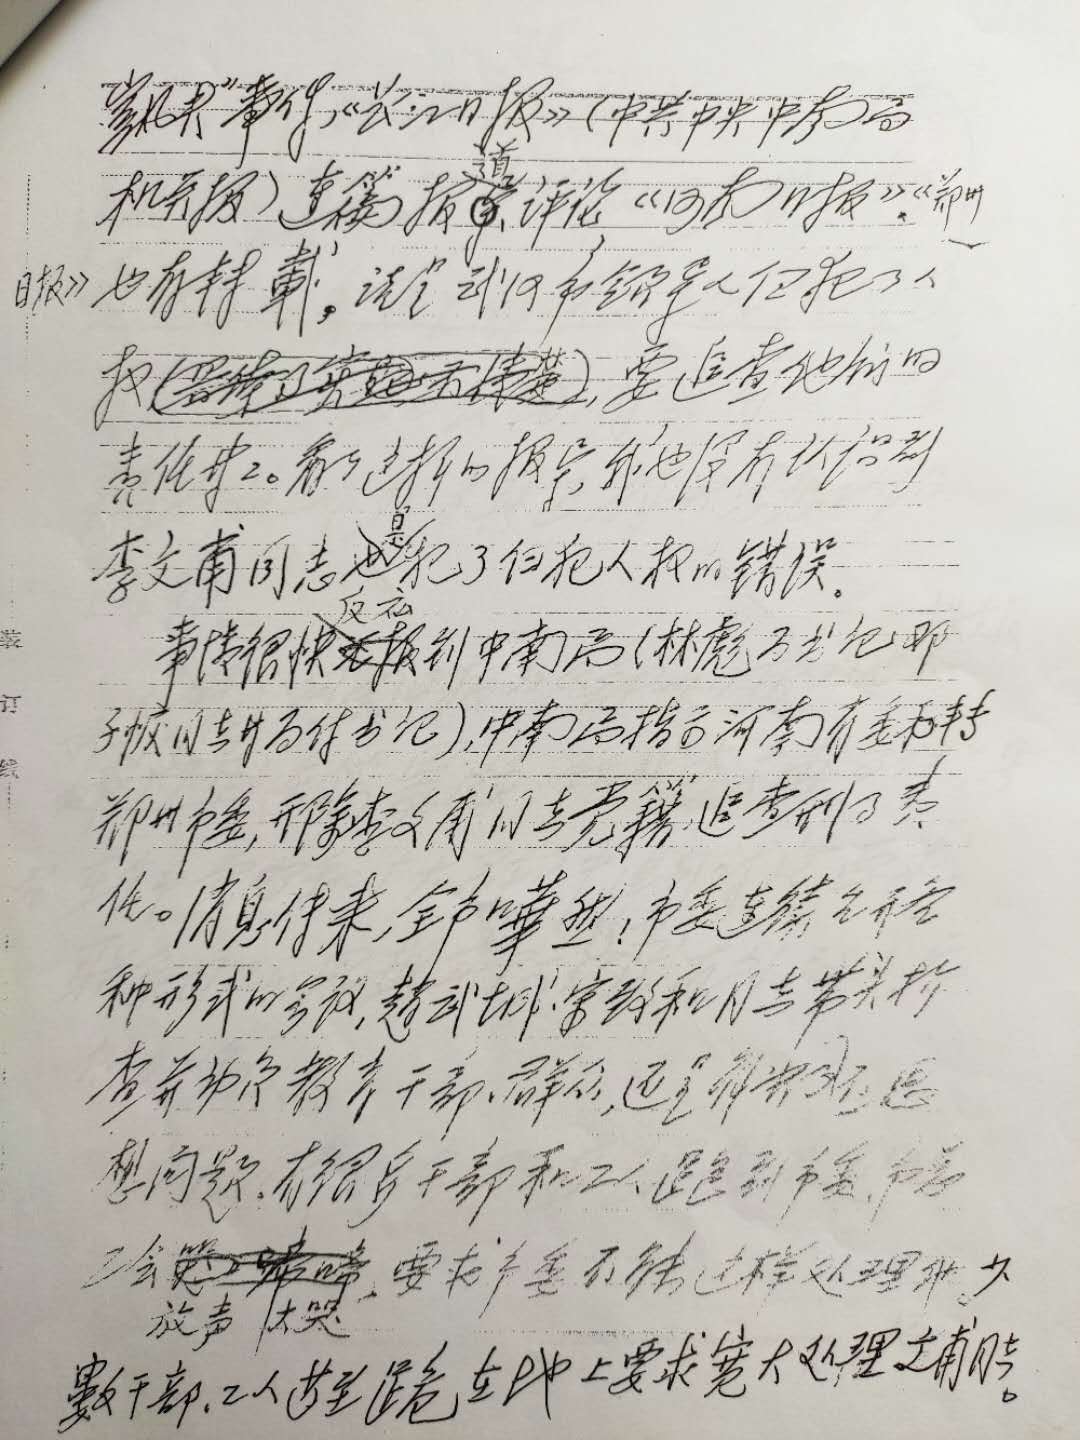 事件，《长江日报》（中共中央中南局
机关报）连篇报道、评论，《河南日报》、《郑州
日报》也有转载，说是武汉市领导人侵犯了人
权，要追查他们的
责任等等。看了这样的报导，我也没有认识到
李文甫同志是犯了侵犯人权的错误。
事情很快反应到中南局（林彪为书记，邓
子恢同志为副书记），中南局指示河南省委转
郑州市委，开除李文甫同志党籍，追查刑事责
任。消息传来，全市哗然！市委连续召开各
种形式的会议，赵武成、常致和同志带头检
查并动员教育干部、群众，还是解决不了思
想问题。有很多干部和工人跑到市委、市总
工会放声大哭，要求市委不能这样处理他。少
数干部、工人甚至跪在地上要求宽大处理文甫同志。
装
订
线